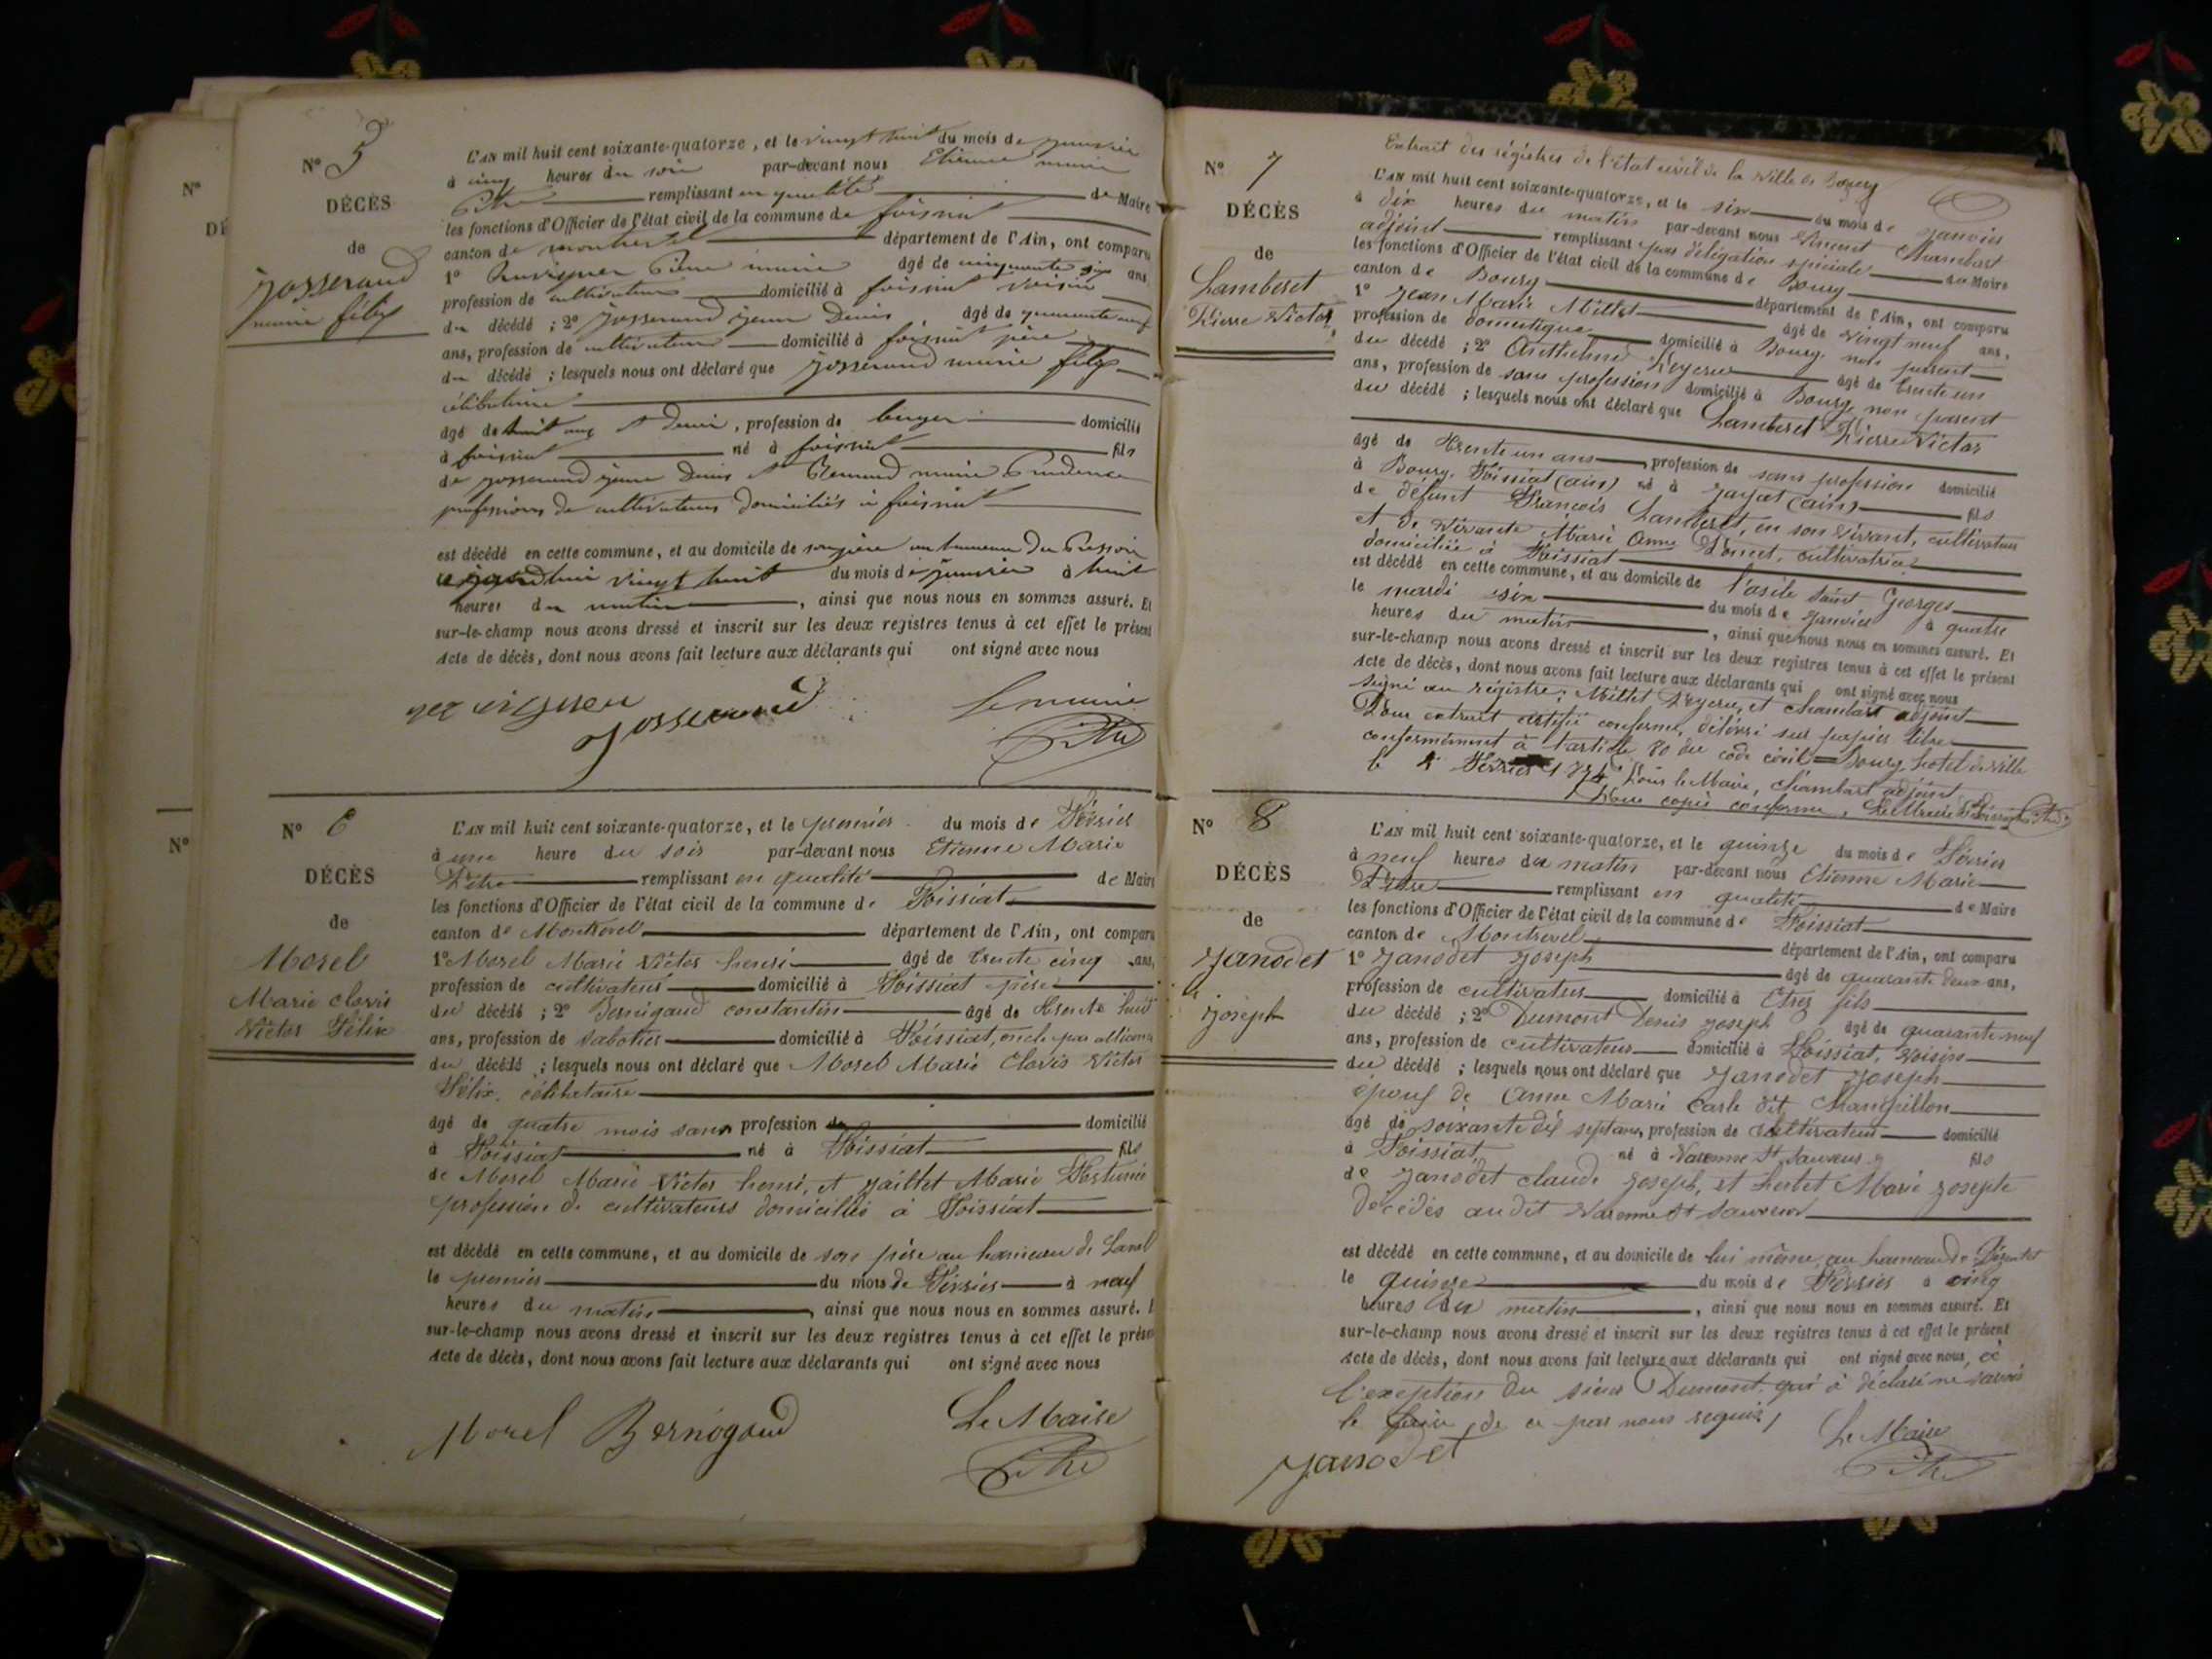 N° 5
DÉCÈS
de
Josserand
marie félix
L'AN mil huit cent soixante-quatorze, et le vingt huit du mois de janvier
à cinq heures du soir par-devant nous Etienne marie
Pitre remplissant en qualité de Maire
les fonctions d'Officier de l'état civil de la commune de foissiat
canton de montrevel département de l'Ain, ont comparu
1° Pierre marie âgé de cinquante six ans,
profession de cultivateur domicilié à foissiat voisin
du décédé ; 2° Josserand jean Denis, âgé de quarante neuf
ans, profession de cultivateur domicilié à foissiat père
du décédé ; lesquels nous ont déclaré que Josserand marie félix
célibataire
âgé de huit ans et demi, profession de berger domicilié
à foissiat né à foissiat fils
de josserand jean Denis et marie Prudence
professions de cultivateurs domiciliés à foissiat
est décédé en cette commune, et au domicile de son père au hameau du Pressoir
le aujourd'hui vingt huit du mois de janvier à huit
heures du matin, ainsi que nous nous en sommes assuré. Et
sur-le-champ nous avons dressé et inscrit sur les deux registres tenus à cet effet le présent
Acte de décès, dont nous avons fait lecture aux déclarants qui ont signé avec nous
Josserand
le maire
Pitre
N° 6
DÉCÈS
de
Morel
Marie clovis
Victor Félix
L'AN mil huit cent soixante-quatorze, et le premier du mois de Février
à une heure du soir par-devant nous Etienne Marie
Pitre remplissant en qualité de Maire
les fonctions d'Officier de l'état civil de la commune de Foissiat
canton de Montrevel département de l'Ain, ont comparu
1° Morel Marie Victor henri âgé de trente cinq ans,
profession de cultivateur domicilié à Foissiat père
du décédé ; 2° Bernigaud constantin âgé de trente huit
ans, profession de sabotier domicilié à Foissiat, oncle par alliance
du décédé ; lesquels nous ont déclaré que Morel Marie Clovis Victor
Félix, célibataire
âgé de quatre mois sans profession de domicilié
à Foissiat né à Foissiat fils
de Morel Marie Victor henri, et Marie
profession de cultivateurs domiciliés à Foissiat
est décédé en cette commune, et au domicile de son père au hameau de
le premier du mois de Février à neuf
heures du matin, ainsi que nous nous en sommes assuré.
sur-le-champ nous avons dressé et inscrit sur les deux registres tenus à cet effet le prése
Acte de décès, dont nous avons fait lecture aux déclarants qui ont signé avec nous
Morel Bernigaud
Le Maire
Pitre
Extrait des régistres de l'état civil de la ville de Bourg
N° 7
DÉCÈS
de
Lamberet
Pierre Victor
L'AN mil huit cent soixante-quatorze, et le six du mois de janvier
à dix heures du matin par-devant nous Vincent Chambart
adjoint remplissant par délégation spéciale du Maire
les fonctions d'Officier de l'état civil de la commune de Bourg
canton de Bourg département de l'Ain, ont comparu
1° Jean Marie Millet âgé de vingt neuf ans,
profession de domestique domicilié à Bourg non parent
du décédé ; 2° Anthelme âgé de trente un
ans, profession de sans profession domicilié à Bourg non parent
du décédé ; lesquels nous ont déclaré que Lamberet Pierre Victor
âgé de trente un ans, profession de sans profession domicilié
à Bourg, Foissiat (ain) né à Jayat (ain) fils
de défunt François Lamberet, en son vivant, cultivateur
et de vivante Marie Anne Poncet, cultivatrice
domiciliée à Foissiat
est décédé en cette commune, et au domicile de l'asile saint Georges
le mardi six du mois de janvier à quatre
heures du matin, ainsi que nous nous en sommes assuré. Et
sur-le-champ nous avons dressé et inscrit sur les deux registres tenus à cet effet le présent
Acte de décès, dont nous avons fait lecture aux déclarants qui ont signé avec nous
signé au régistre; Millet et Chambart adjoint
Pour extrait certifié conforme, délivré sur papier libre
conformément à l'article 80 du code civil Bourg, hotel de ville
le Février 1874 Pour le Maire, Chambart adjoint
Pour copie conforme, Le Maire de Foissiat, Pitre
N° 8
DÉCÈS
de
Janodet
joseph
L'AN mil huit cent soixante-quatorze, et le quinze du mois de Février
à neuf heures du matin par-devant nous Etienne Marie
Pitre remplissant en qualité de Maire
les fonctions d'Officier de l'état civil de la commune de Foissiat
canton de Montrevel département de l'Ain, ont comparu
1° Janodet Joseph âgé de quarante deux ans,
profession de cultivateur domicilié à Etrez fils
du décédé ; 2° Dumont Denis joseph âgé de quarante neuf
ans, profession de cultivateur domicilié à Foissiat, voisin
du décédé ; lesquels nous ont déclaré que Janodet Joseph
époux de Anne Marie Carle dit
âgé de soixante dix sept ans, profession de cultivateur domicilié
à Foissiat, né à Varenne St Sauveur fils
de Janodet claude joseph, et herbet Marie josephe
décédés audit Varenne St Sauveur
est décédé en cette commune, et au domicile de lui même au hameau de
le quinze du mois de Février à cinq
heures du matin, ainsi que nous nous en sommes assuré. Et
sur-le-champ nous avons dressé et inscrit sur les deux registres tenus à cet effet le présent
Acte de décès, dont nous avons fait lecture aux déclarants qui ont signé avec nous, à
l'exception du sieur Dumont qui à déclaré ne savoir
le faire, de ce par nous requis,
Janodet
Le Maire
Pitre